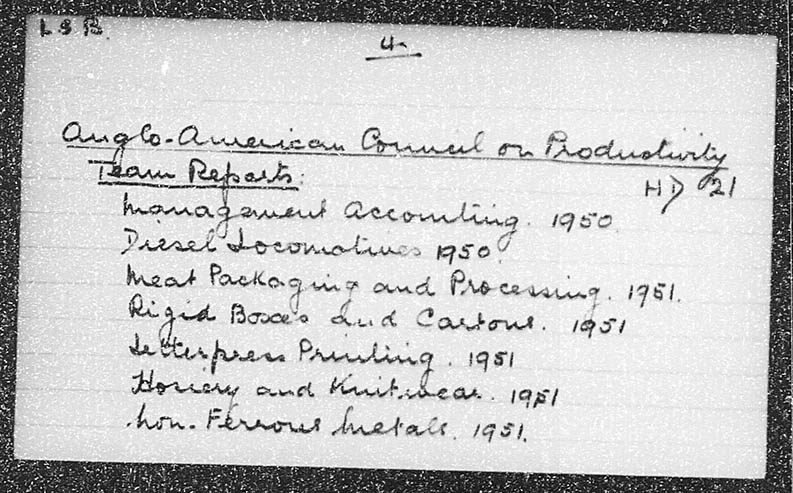 L S B.
4.
Anglo-American Council on Productivity
Team Reports: HD 21
Management Accounting. 1950
Diesel Locomotives 1950
Meat Packaging and Processing. 1951.
Rigid Boxes and Cartons. 1951
Letterpress Printing. 1951
Hosiery and Knitwear. 1951
Non-Ferrous Metals. 1951.